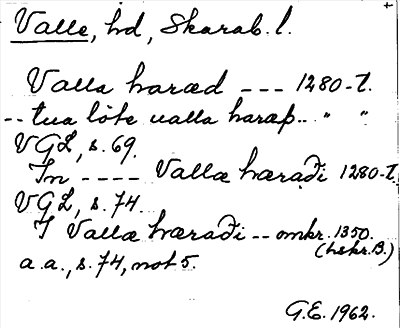 Valle, hd, Skarab. l.
Valla haræd --- 1280-t.
-- tua löte ualla haræþ.. " "
VGL, s. 69.
In ---- Vallæ hæraði 1280-t.
VGL, s. 74.
I Vallæ hæraði -- omkr. 1350.
(hskr. B.)
a.a., s. 74, not 5.
G.E. 1962.